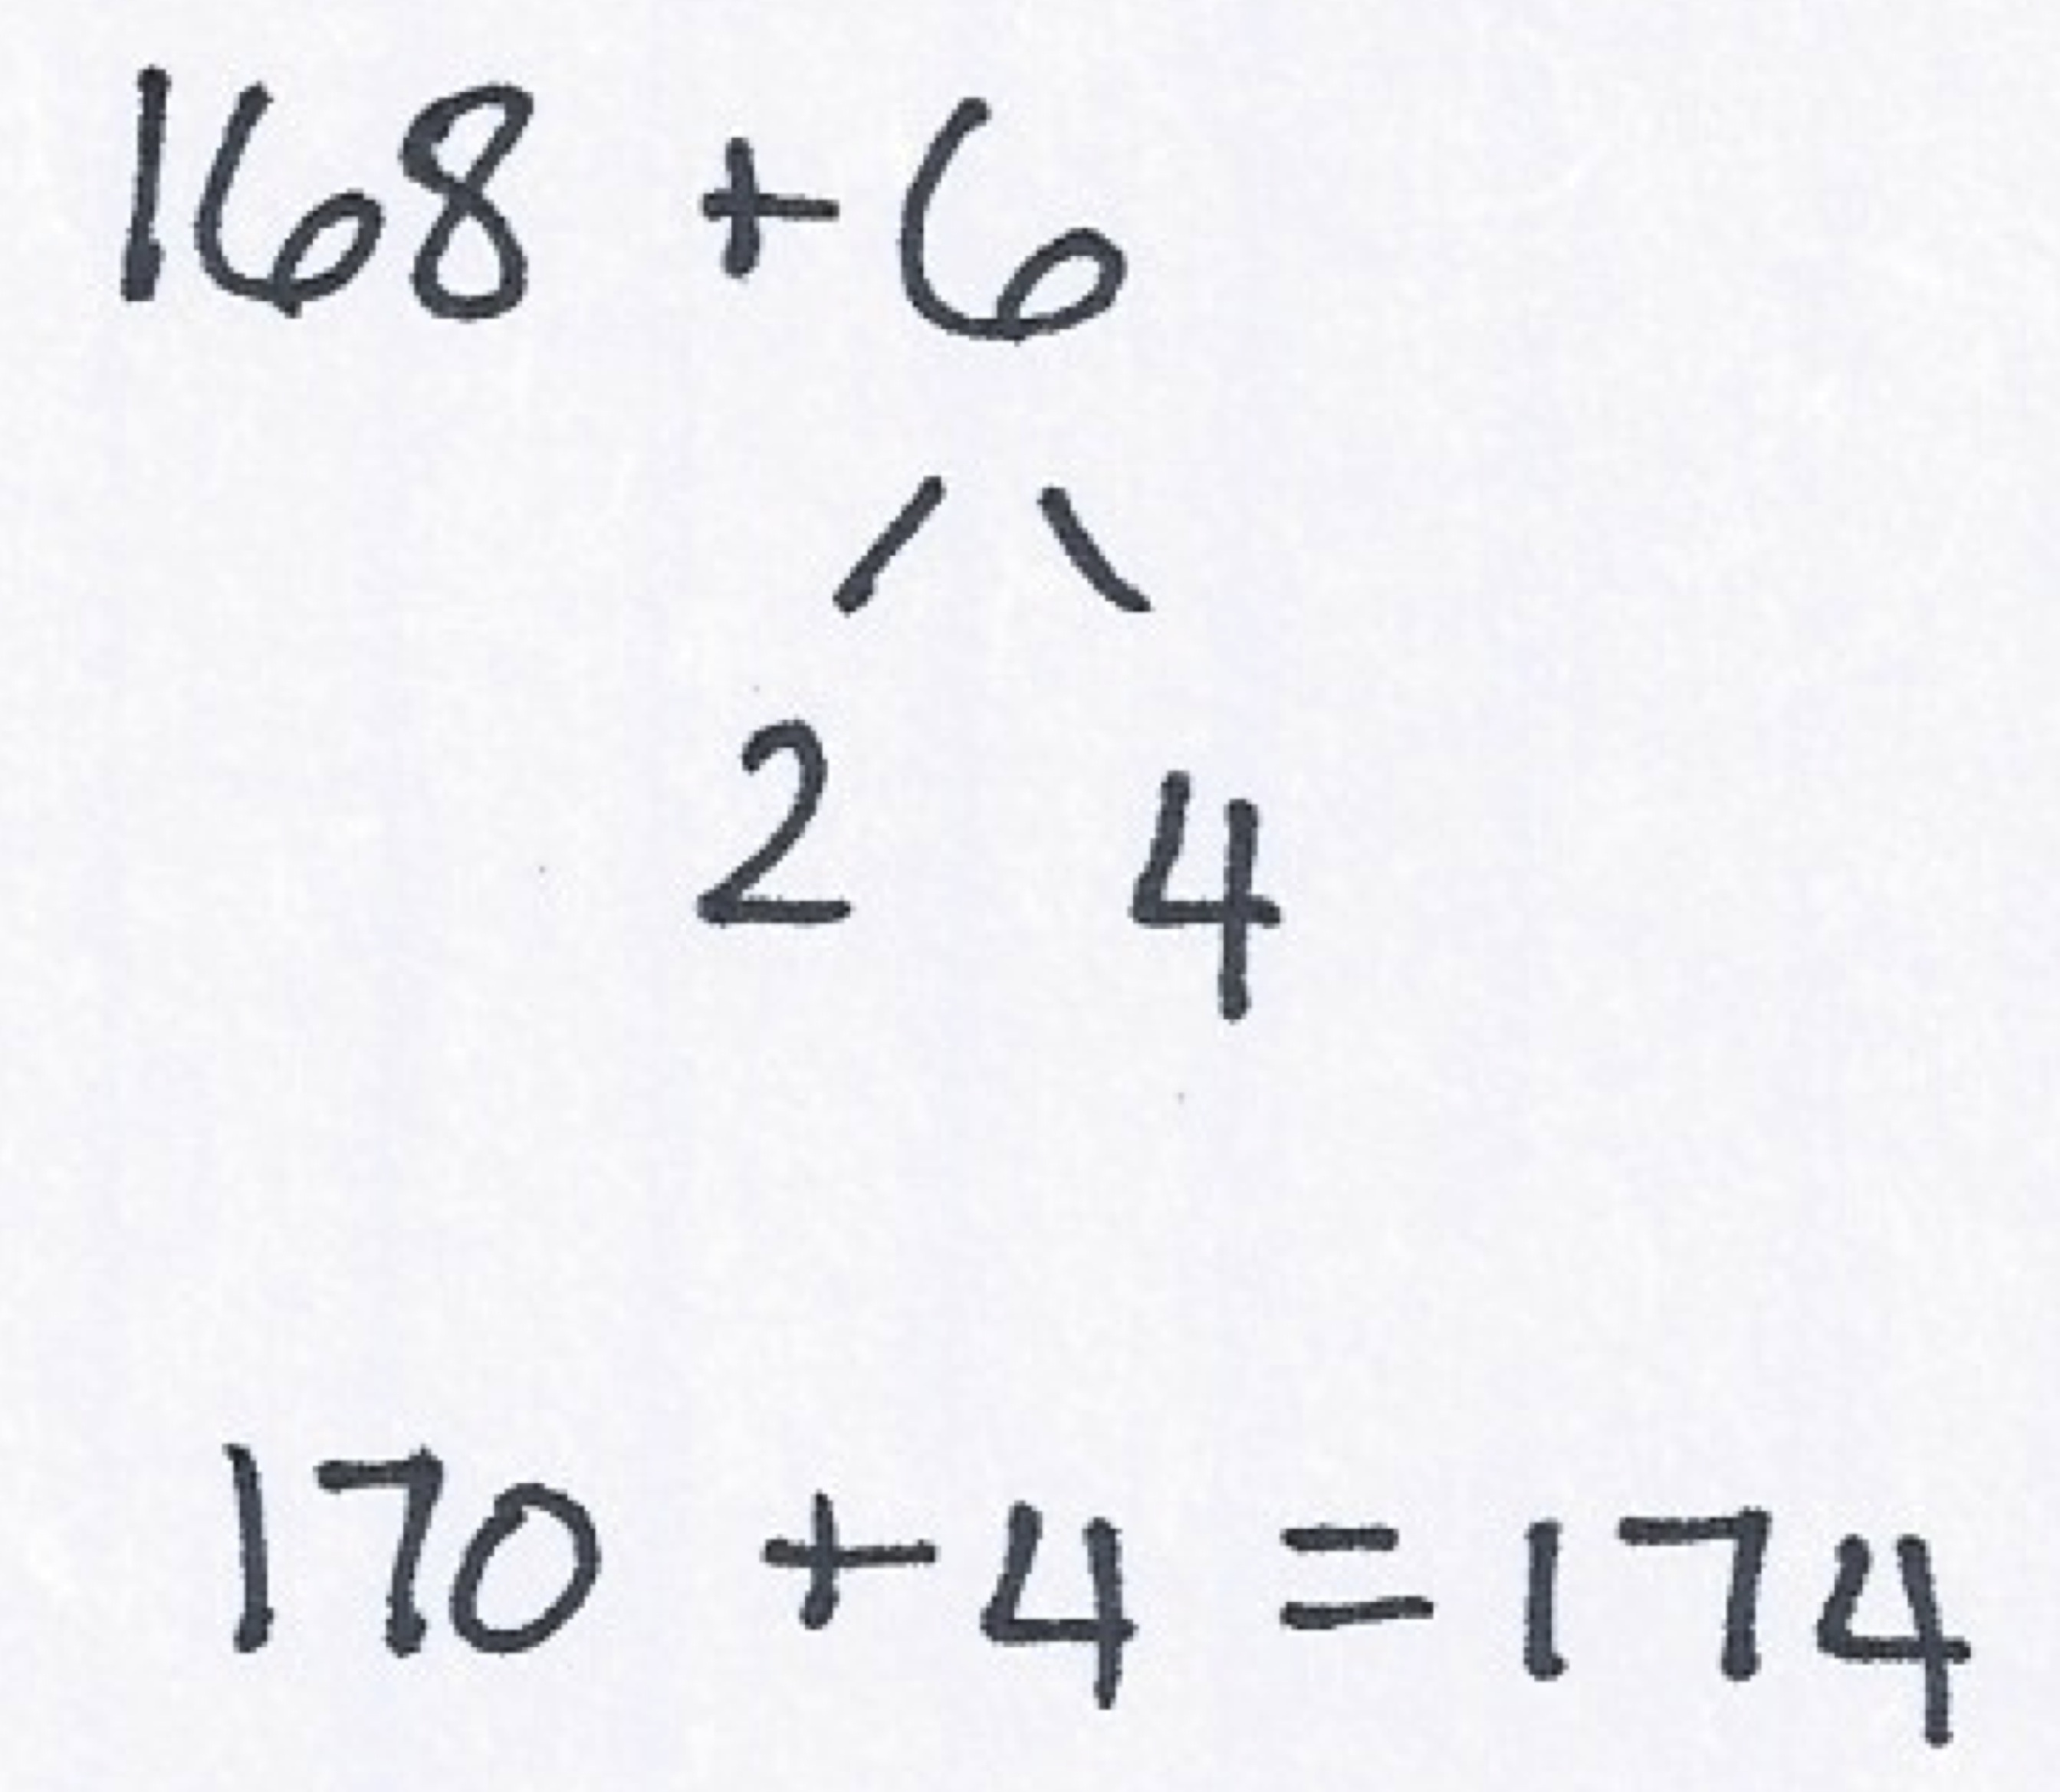 168 + 6
2 4
170 + 4 = 174